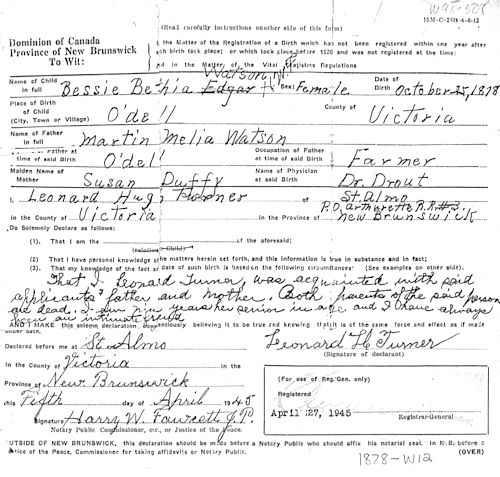 W95-528
15M-C-248 4-6-42
(Read carefully instructions on other side of this form)
Dominion of Canada
Province of New Brunswick
To Wit:
the Matter of the Registration of a Birth which has not been registered within one year after
such birth took place; or which took place before 1920 and was not registered at the time:
And in the Matter of the Vital Statistics Regulations
Name of Child in full Bessie Bethia Watson Edgar Sex: Female Date of Birth October 25, 1878
Place of Birth of Child (City, Town or Village) O'dell County of Victoria
Name of Father in full Martin Melia Watson
of Father at time of said Birth O'dell Occupation of Father at time of said Birth Farmer
Maiden Name of Mother Susan Duffy Name of Physician at said Birth Dr. Drout
I, Leonard Hugh Turner of St. Almo
P.O. Arthurette R.R.#3
in the County of Victoria in the Province of New Brunswick
Do Solemnly Declare as follows:
(1). That I am the of the aforesaid;
(relation to Child)
(2). That I have personal knowledge of the matters herein set forth, and this information is true in substance and in fact;
(3). That my knowledge of the fact and date of such birth is based on the following circumstances: (See examples on other side).
That I, Leonard Turner, was acquainted with said
applicants' father and mother. Both parents of the said person
are dead. I am years her senior in age and I have always
been an intimate friend
AND I MAKE this solemn declaration conscientiously believing it to be true and knowing that it is of the same force and effect as if made
under oath.
Declared before me at St. Almo
Leonard H. Turner
(Signature of declarant)
In the County of Victoria in the
Province of New Brunswick
this Fifth day of April 1945
Signature Harry W. Fawcett J.P.
Notary Public Commissioner, etc., or Justice of the Peace.
(For use of Reg./Gen. only)
Registered
April 27, 1945
Registrar-General
OUTSIDE OF NEW BRUNSWICK, this declaration should be made before a Notary Public who should affix his notarial seal. In N.B. before a
Justice of the Peace, Commissioner for taking affidavits or Notary Public.
(OVER)
1878-W12